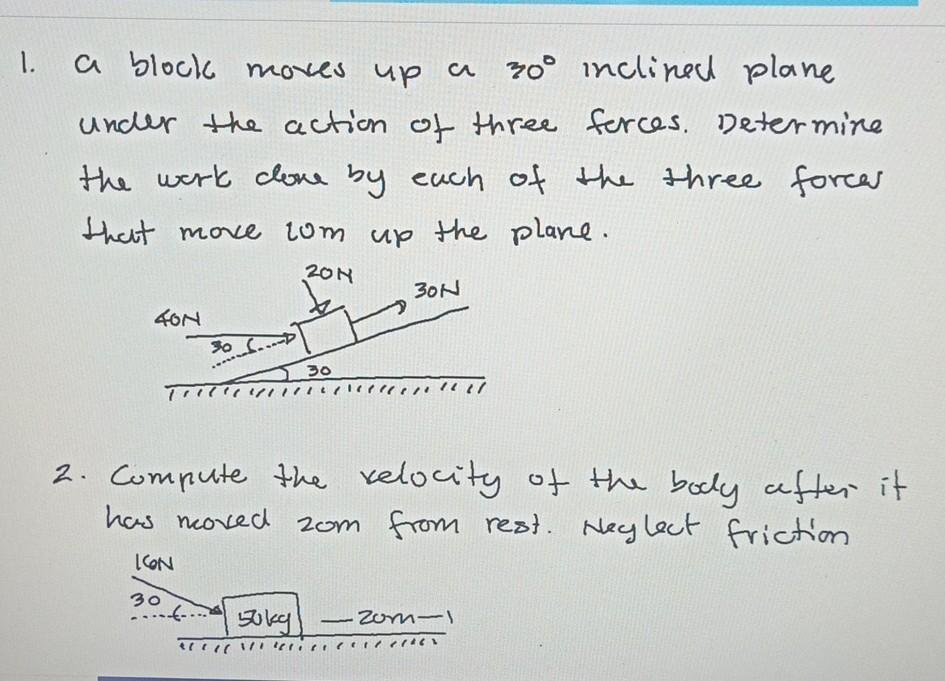 1. a block moves up a 30° inclined plane
under the action of three forces. Determine
the work done by each of the three forces
that move 10m up the plane.
20N
30N
40N
30
30
2. Compute the velocity of the body after it
has moved 20m from rest. Neglect friction
160N
30
50kg
20m